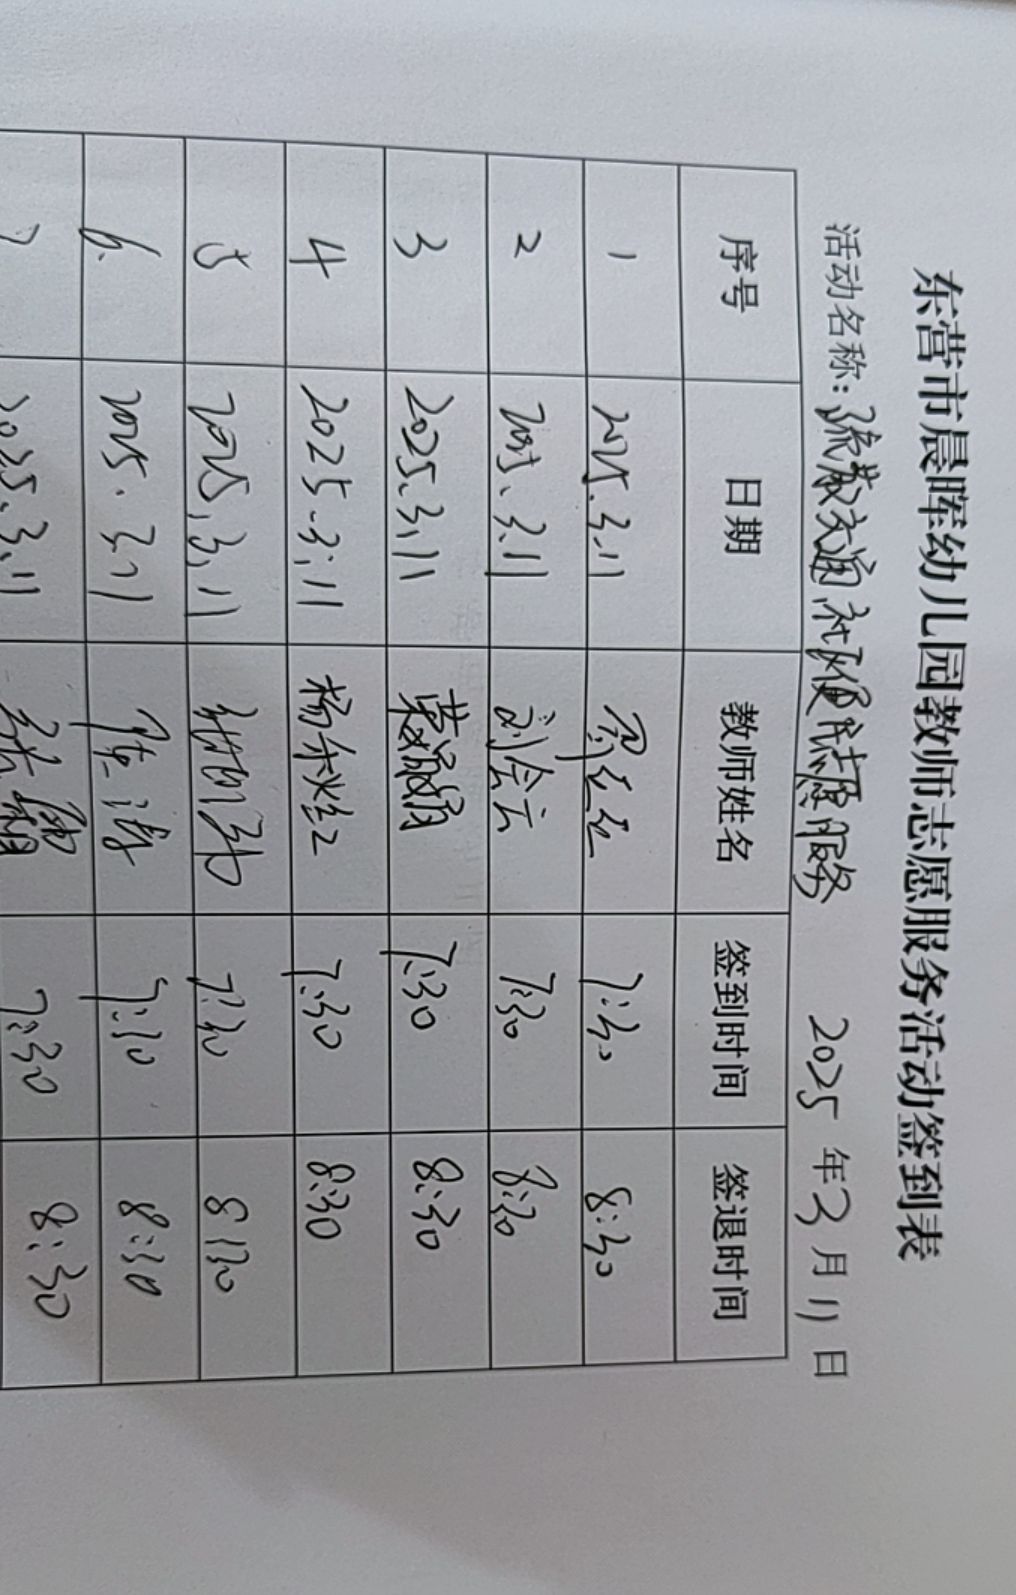 东营市晨晖幼儿园教师志愿服务活动签到表
活动名称：疏散交通 社区便民志愿服务 2025年3月11日
序号 日期 教师姓名 签到时间 签退时间
1 2025.3.11 7:30 8:30
2 2025、3.11 刘会云 7:30 8:30
3 2025.3.11 7:30 8:30
4 2025-3.11 杨秋红 7:30 8:30
5 2025.3.11 7:30 8:30
6. 2025.3.11 7:30 8:30
7 2025.3.11 7:30 8:30